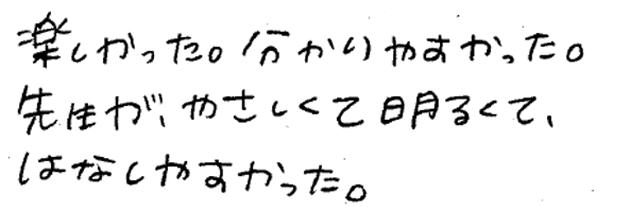 楽しかった。分かりやすかった。
先生が、やさしくて明るくて、
はなしやすかった。